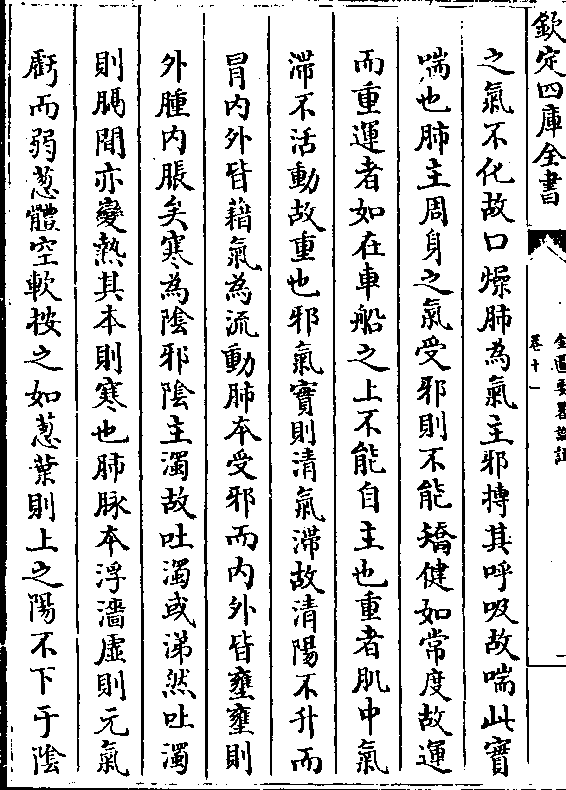 欽定四庫全書
卷十一
之氣不化故口燥肺為氣主邪摶其呼吸故喘此實
喘也肺主周身之氣受邪則不能矯健如常度故運
而重運者如在車船之上不能自主也重者肌中氣
滯不活動故重也邪氣實則清氣滯故清陽不升而
冒内外皆藉氣為流動肺本受邪而内外皆壅壅則
外腫内脹矣寒為陰邪陰主濁故吐濁或涕然吐濁
則膈間亦變熱其本則寒也肺脉本浮濇虛則元氣
虧而弱葱體空軟按之如葱葉則上之陽不下于陰